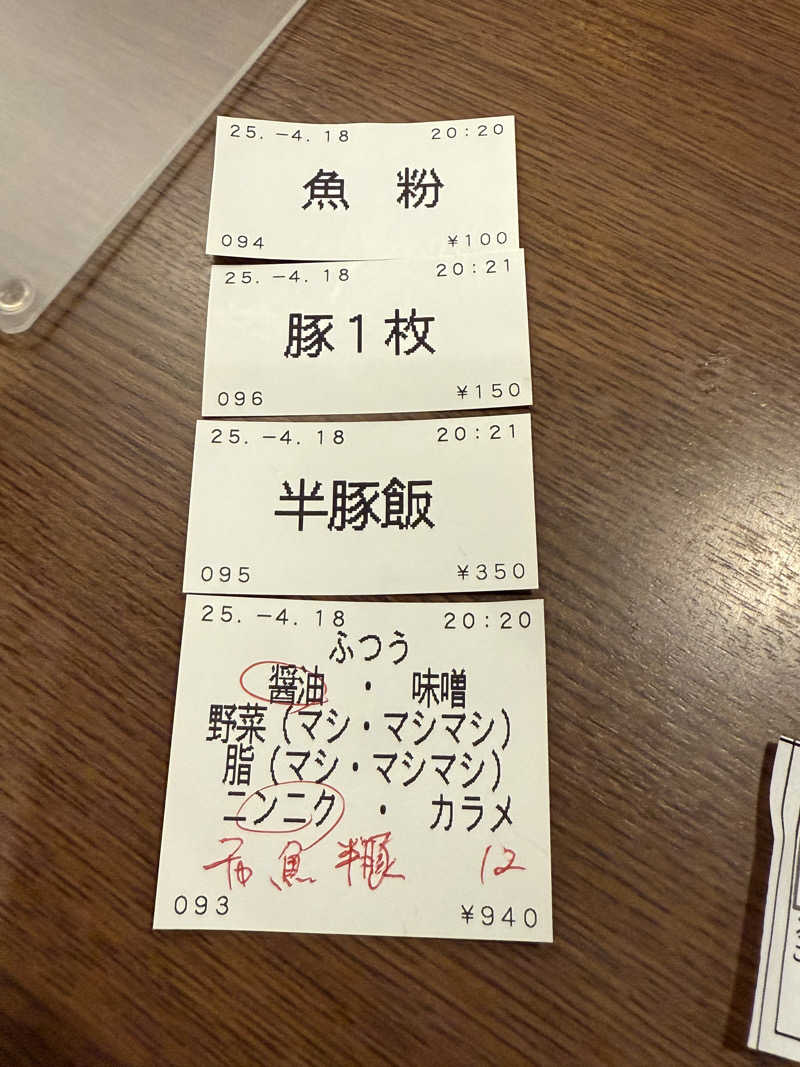 25.-4.18 20:20
魚 粉
094 ¥100
25.-4.18 20:21
豚1枚
096 ¥150
25.-4.18 20:21
半豚飯
095 ¥350
25.-4.18 20:20
ふつう
醤油 ・ 味噌
野菜(マシ・マシマシ)
脂(マシ・マシマシ)
ニンニク ・ カラメ
魚 半豚 12
093 ¥940